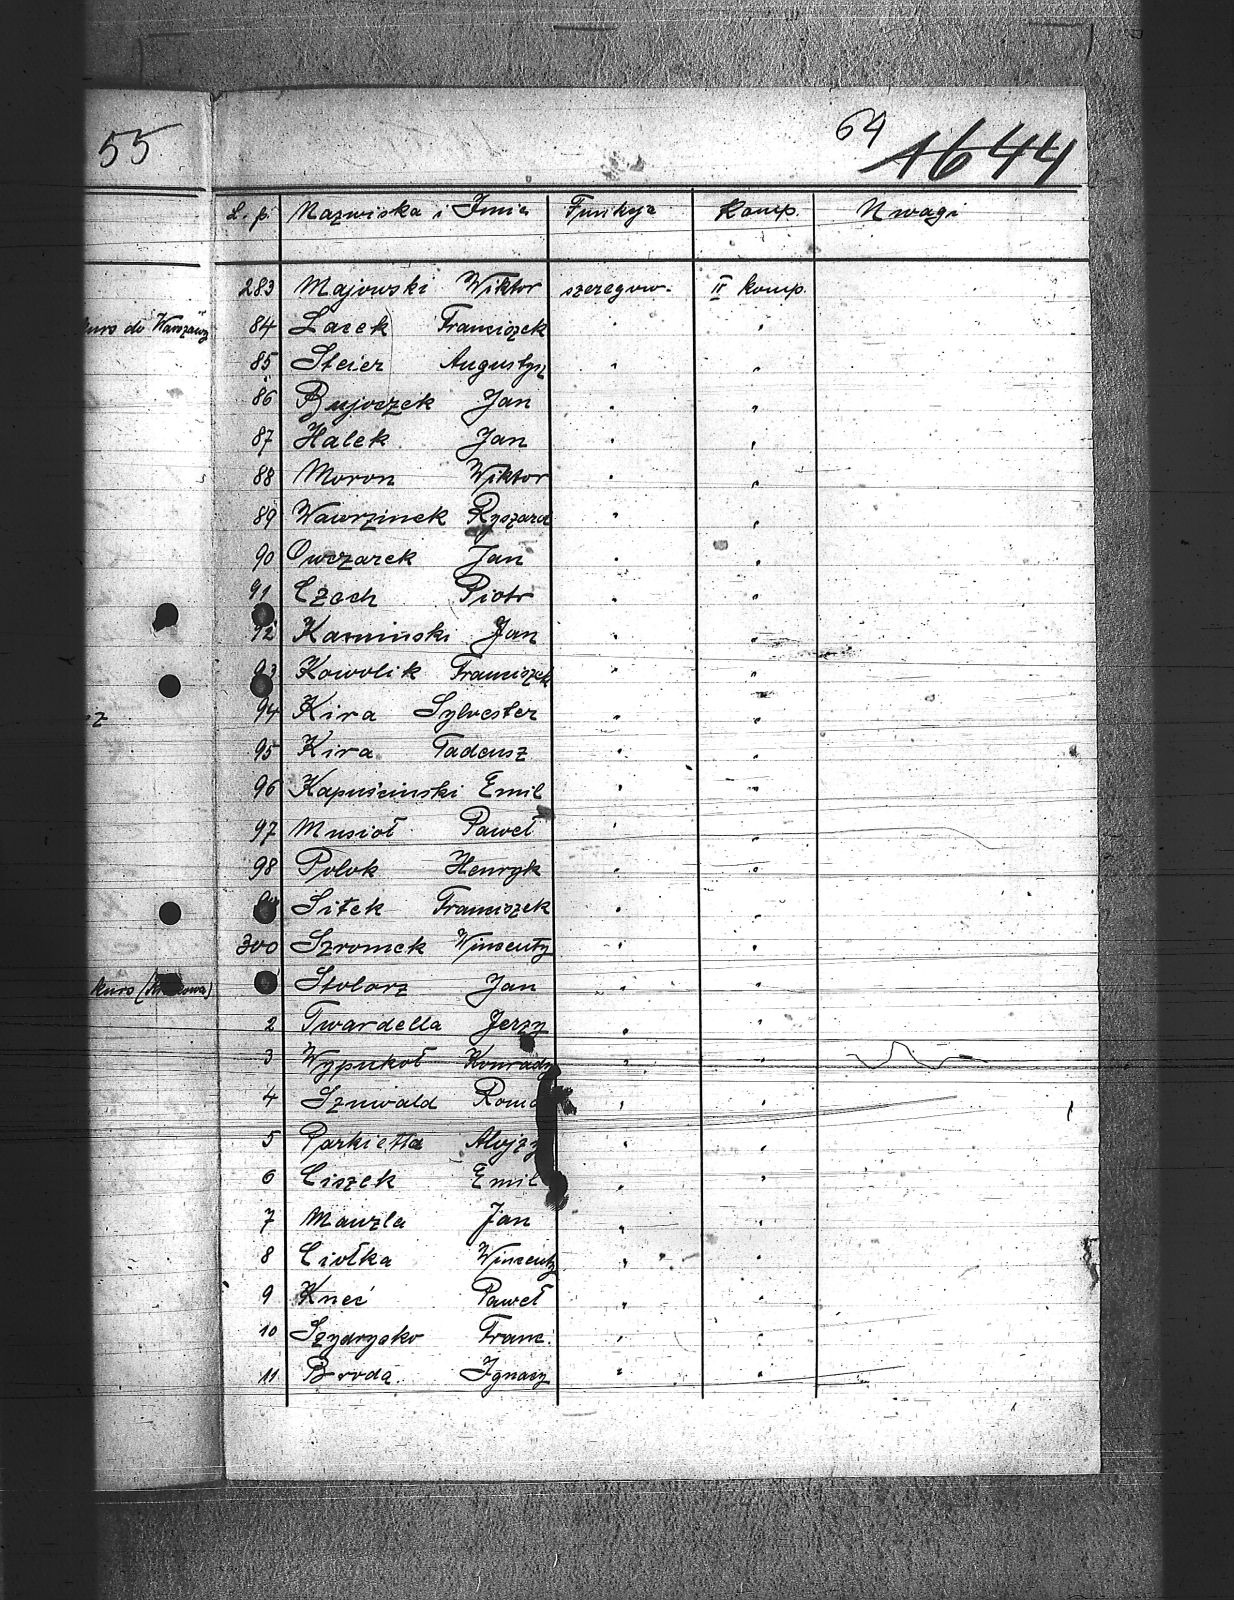 55
64 1644
L. p. Nazwiska i Imię Funkcja Komp. Uwagi
283 Majowski Wiktor szeregow. II komp.
kurs do Warszawy
84 Lacek Franciszek " "
85 Steier Augustyn " "
86 Bujoczek Jan " "
87 Halek Jan " "
88 Moron Wiktor " "
89 Wawrzinek Ryszard " "
90 Owczarek Jan " "
91 Czech Piotr " "
92 Kaminski Jan " "
93 Kowolik Franciszek " "
94 Kira Sylvester " "
95 Kira Tadeusz " "
96 Kapuścinski Emil " "
97 Musioł Paweł " "
98 Polok Henryk " "
Sitek Franciszek " "
300 Szromek Wincenty " "
kurs
Stolorz Jan " "
2 Twardella Jerzy " "
3 Wypukoł Konrady " "
4 Sznwald " "
5 Parkietta Alojzy " "
6 Ciszek Emil " "
7 Mauzla Jan " "
8 Ciołka Wincenty " "
9 Kneć Paweł " "
10 Szydrysko Franc. " "
11 Broda Ignacy " "